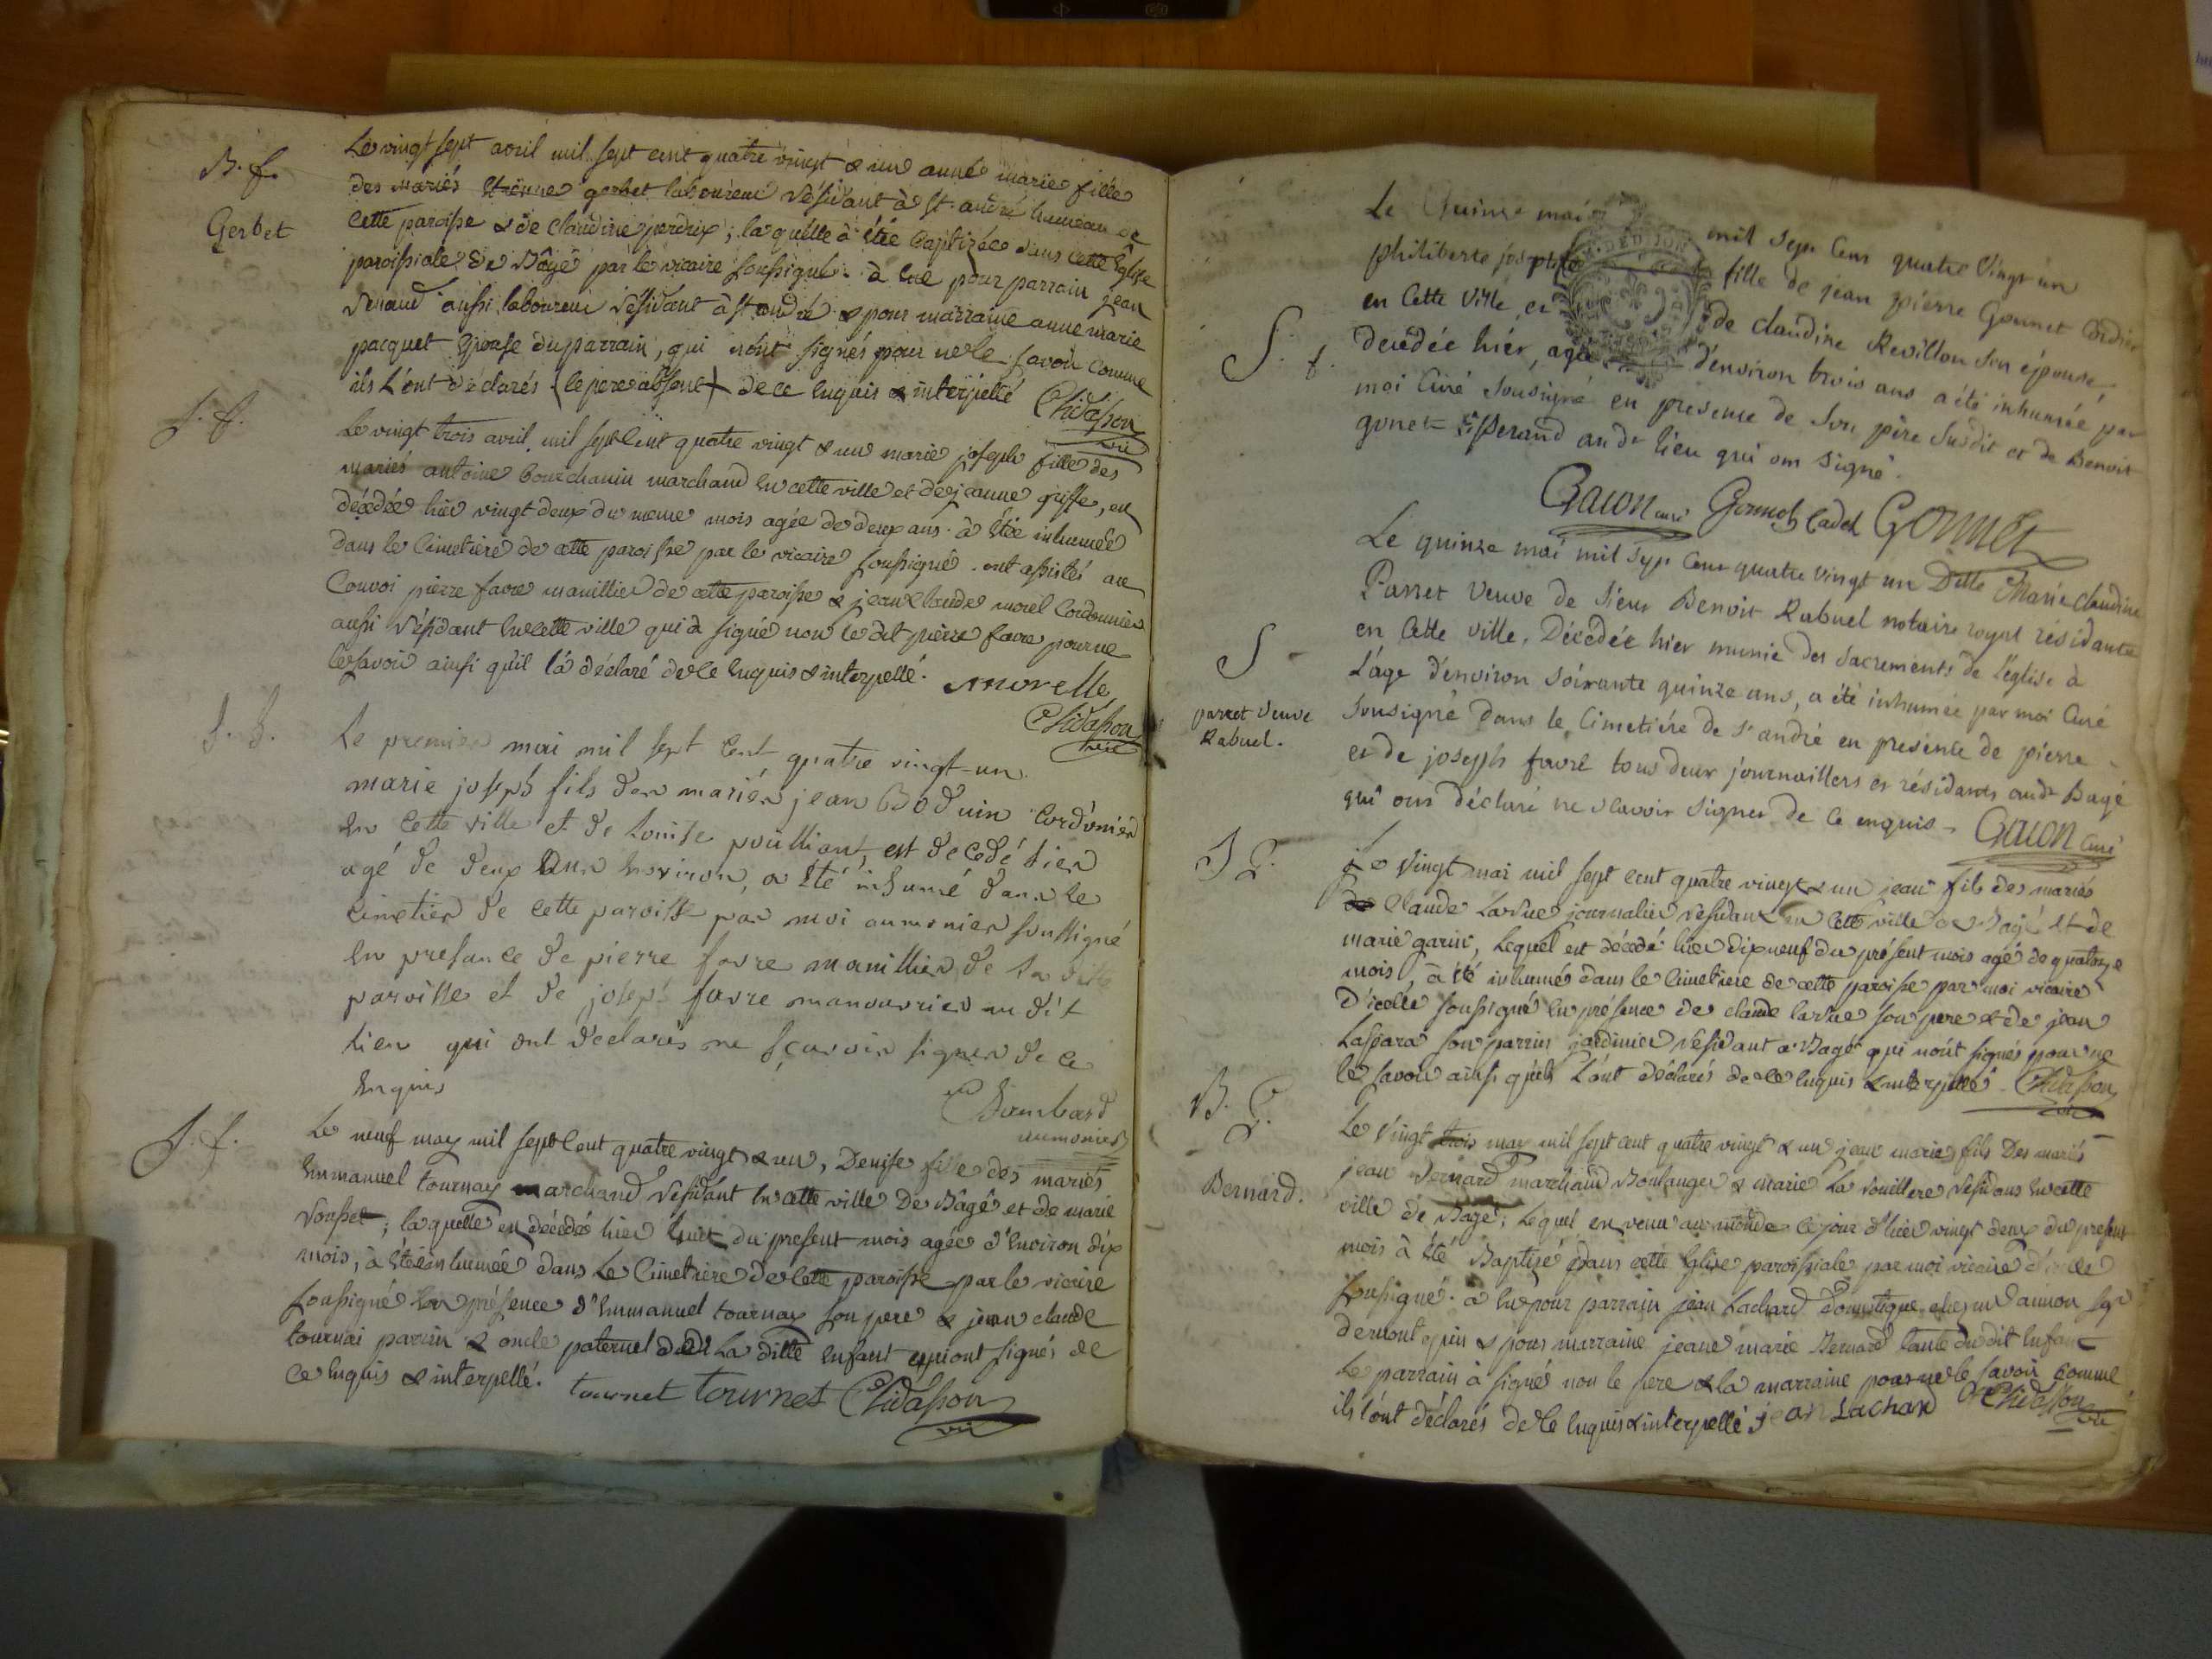 B. f.
Gerbet
Le vingt sept avril mil sept cent quatre vingt & un anne marie fille
des mariés etienne gerbet laboureur résidant à st andré hameau de
cette paroisse & de claudine perdrix; laquelle à été baptizée dans cette Eglise
paroissiale de Bâgé par le vicaire soussigné. à eue pour parrain jean
renaud aussi laboureur résidant à st andré & pour marraine anne marie
pacquet Epouse du parrain, qui n'ont signés pour ne le savoir comme
ils l'ont déclarés (le pere absent) de ce enquis & interpellé Chidasson
vic
S. f.
Le vingt trois avril mil sept cent quatre vingt & un marie joseph fille des
mariés antoine bourchanin marchand en cette ville et de jeanne griffe, en
décédée hier vingt deux du meme mois agée de deux ans. à été inhumée
dans le cimetiere de cette paroisse par le vicaire soussigné. ont assistés au
Convoi pierre favre manillier de cette paroisse & jean claude morel cordonnier
aussi résidant en cette ville qui à signé non le dit pierre favre pour ne
le savoir ainsi qu'il l'a déclaré de ce enquis & interpellé. morelle
Chidasson
vic
S. G.
Le premier mai mil sept cent quatre vingt-un
marie joseph fils des mariés jean Boduin cordonier
en cette ville et de Louise poulliant, est decedé hier
agé de deux ans environ, a été inhumé dans le
cimetier de cette paroisse par moi aumonier soussigné
en presance de pierre favre manillier de la dite
paroisse et de joseph favre manouvrier au dit
lieu qui ont déclarés ne sçavoir signer de ce
enquis
Dombard
aumonier
S. f.
Le neuf may mil sept cent quatre vingt & un, Denise fille des mariés
emmanuel tournay marchand residant en cette ville De Bâgé et de marie
vousset; laquelle en décédée hier huit du present mois agée d'environ dix
mois, à été inhumée dans le cimetiere de cette paroisse par le vicaire
soussigné en présence d'emmanuel tournay son pere & jean claude
tournai parain & oncle paternel de la ditte enfant qui ont signés de
ce enquis & interpellé. tournet tournet Chidasson
vic
Le Quinze mai mil sept cens quatre vingt un
philiberte josephte fille de jean pierre Gonnet Cordier
en cette ville et de claudine Revillon son épouse,
S. f.
decédée hier, agée d'environ trois ans a été inhumée par
moi Curé sousigné en presence de son père susdit et de Benoit
gonet audt lieu qui ont signé.
Gacon curé Gonnet Cadet Gonnet
Le quinze mai mil sept cens quatre vingt un Dlle Marie claudine
Parret veuve de sieur Benoit Rabuel notaire royal résidante
en cette ville, Décédée hier munie des sacrements de l'église à
S
parret veuve
Rabuel.
l'age d'environ soixante quinze ans, a été inhumée par moi Curé
sousigné dans le Cimetiére de St andré en presence de pierre
et de joseph favre tous deux journaillers et résidants audt Bagé
qui ont déclaré ne sçavoir signer de ce enquis - Gacon Curé
S G.
Le vingt mai mil sept cent quatre vingt & un jean fils des mariés
claude larüe journalier residant en cette ville de Bagé et de
marie garin, lequel est décédé hier dixneuf du présent mois agé de quatorze
mois à été inhumé dans le cimetiere de cette paroisse par moi vicaire
d'icelle soussigné en présence de claude larüe son pere & de jean
Laspara son parrin jardinier residant a Bagé qui n'ont signés pour ne
le savoir ainsi qu'ils l'ont déclarés de ce enquis & interpellé. Chidasson
vic
B. G.
Bernard.
Le vingt trois may mil sept cent quatre vingt & un jean marie fils Des mariés
jean Bernard marchand Boulanger & marie La vouillere residans en cette
ville de Bagé; lequel en venu au monde le jour d'hier vingt deux du present
mois à été Baptizé dans cette Eglise paroissiale par moi vicaire d'icelle
soussigné. à eu pour parrain jean Lachard Domestique
& pour marraine jeane marie Bernard tante dudit enfant
Le parrain à signé non le pere & la marraine pour ne le savoir comme
ils l'ont déclarés de ce enquis & interpellé jean Lachard Chidasson
vic